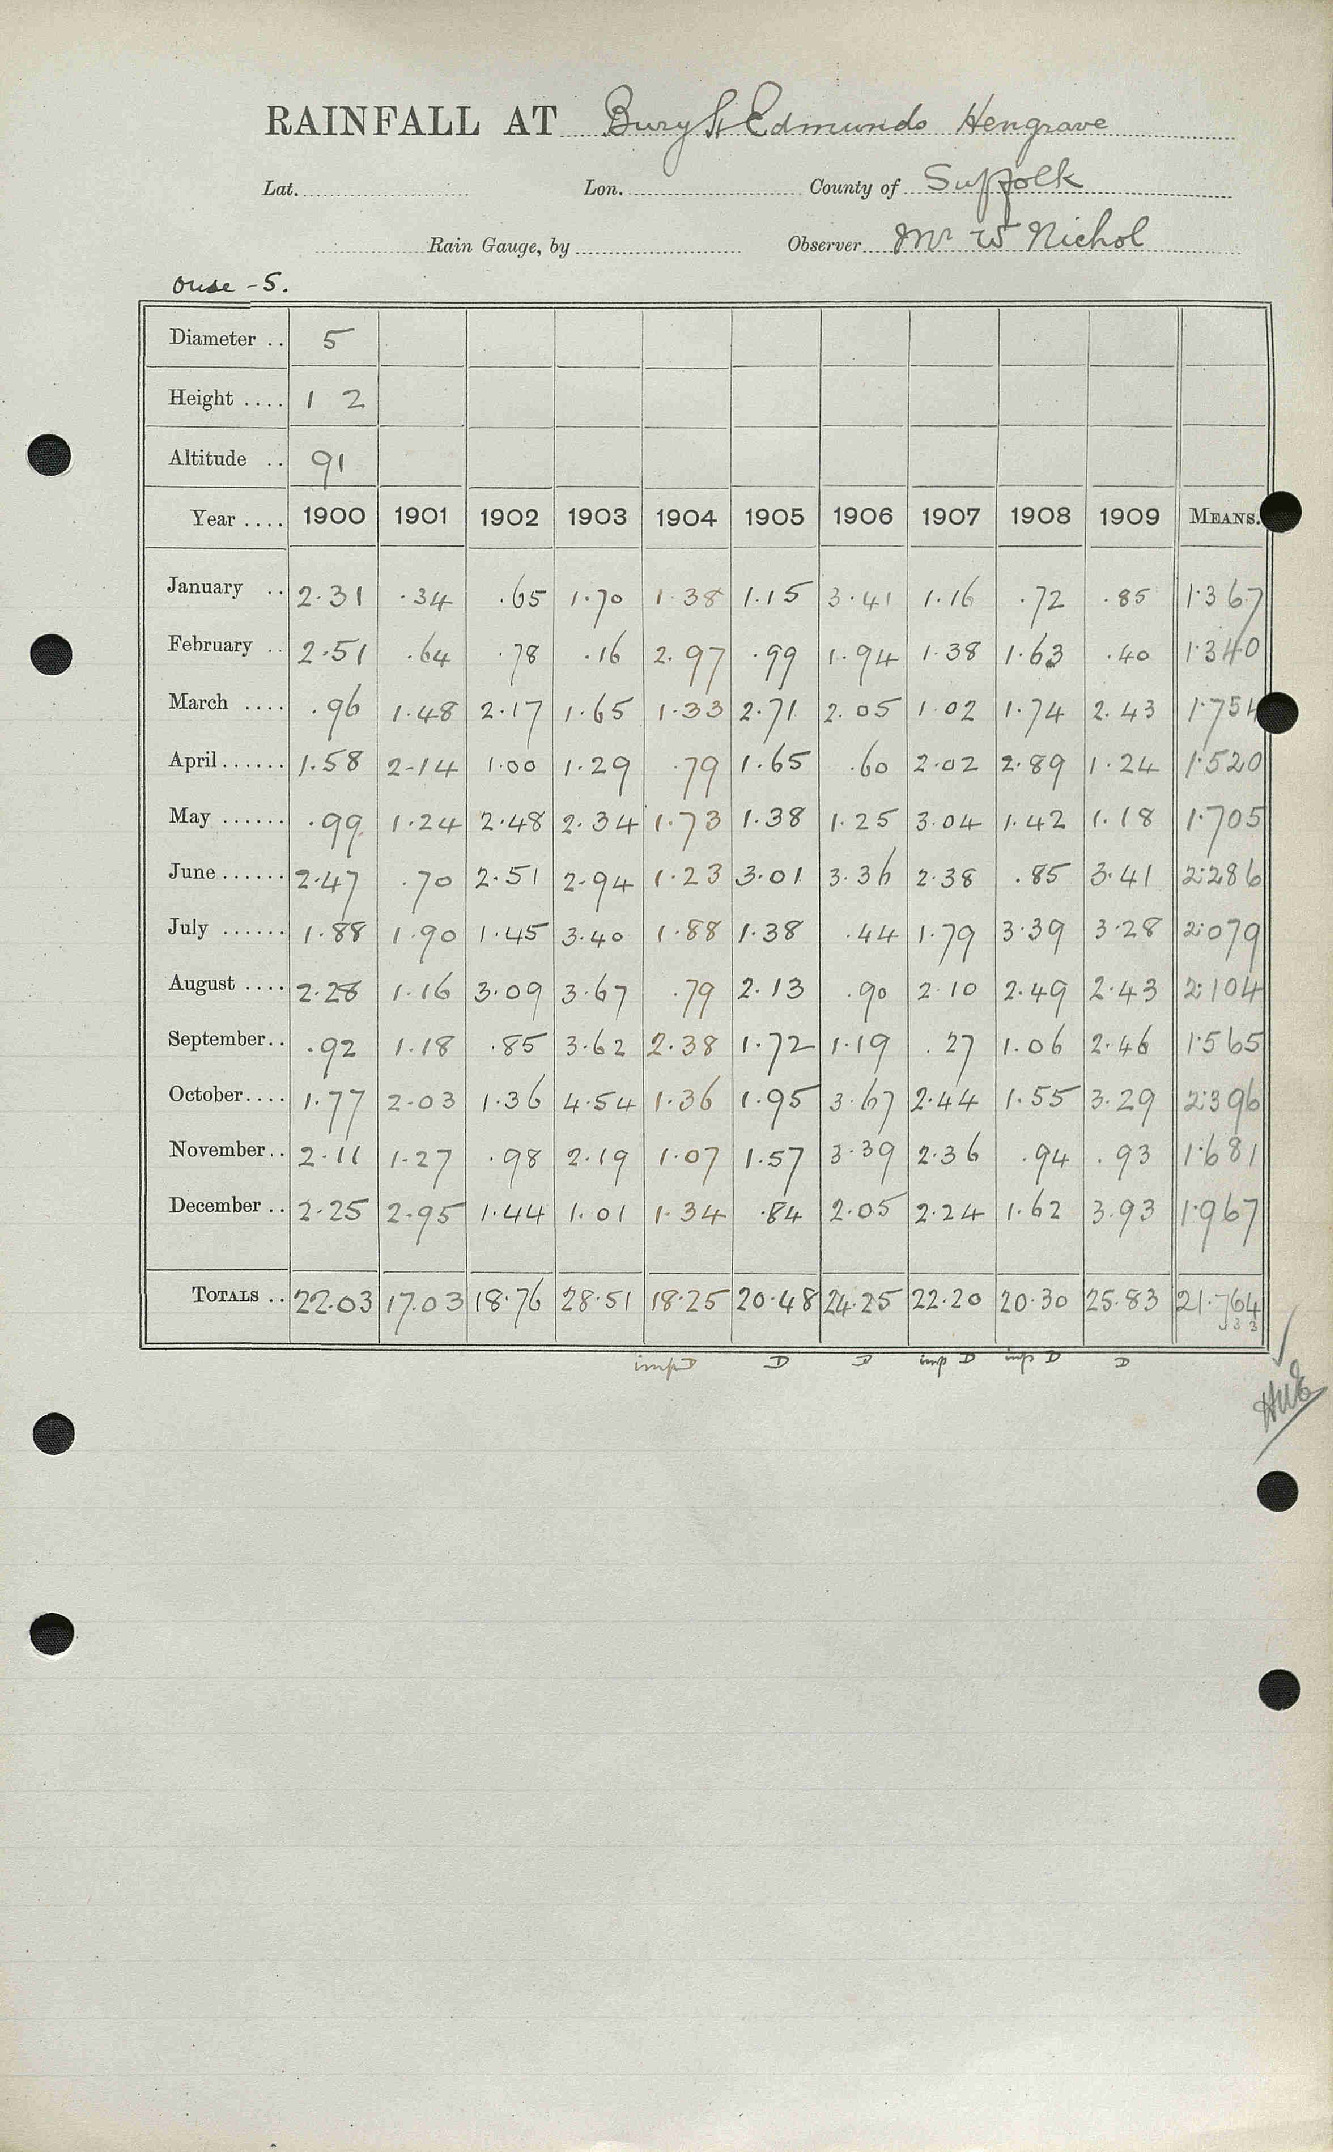 RAINFALL AT Bury St Edmunds Hengrave
Lat. Lon. County of Suffolk
Rain Gauge, by Observer Mr W Nichol
Ouse - 5.
Diameter .. 5
Height .... 1 2
Altitude .. 91
Year .... 1900 1901 1902 1903 1904 1905 1906 1907 1908 1909 MEANS.
January .. 2.31 .34 .65 1.70 1.38 1.15 3.41 1.16 .72 .85 1.367
February .. 2.51 .64 .78 .16 2.97 .99 1.94 1.38 1.63 .40 1.340
March .... .96 1.48 2.17 1.65 1.33 2.71 2.05 1.02 1.74 2.43 1.754
April...... 1.58 2.14 1.00 1.29 .79 1.65 .60 2.02 2.89 1.24 1.520
May ...... .99 1.24 2.48 2.34 1.73 1.38 1.25 3.04 1.42 1.18 1.705
June...... 2.47 .70 2.51 2.94 1.23 3.01 3.36 2.38 .85 3.41 2.286
July ...... 1.88 1.90 1.45 3.40 1.88 1.38 .44 1.79 3.39 3.28 2.079
August .... 2.28 1.16 3.09 3.67 .79 2.13 .90 2.10 2.49 2.43 2.104
September.. .92 1.18 .85 3.62 2.38 1.72 1.19 .27 1.06 2.46 1.565
October.... 1.77 2.03 1.36 4.54 1.36 1.95 3.67 2.44 1.55 3.29 2.396
November.. 2.11 1.27 .98 2.19 1.07 1.57 3.39 2.36 .94 .93 1.681
December .. 2.25 2.95 1.44 1.01 1.34 .84 2.05 2.24 1.62 3.93 1.967
TOTALS .. 22.03 17.03 18.76 28.51 18.25 20.48 24.25 22.20 20.30 25.83 21.764
imp D D D imp D imp D D